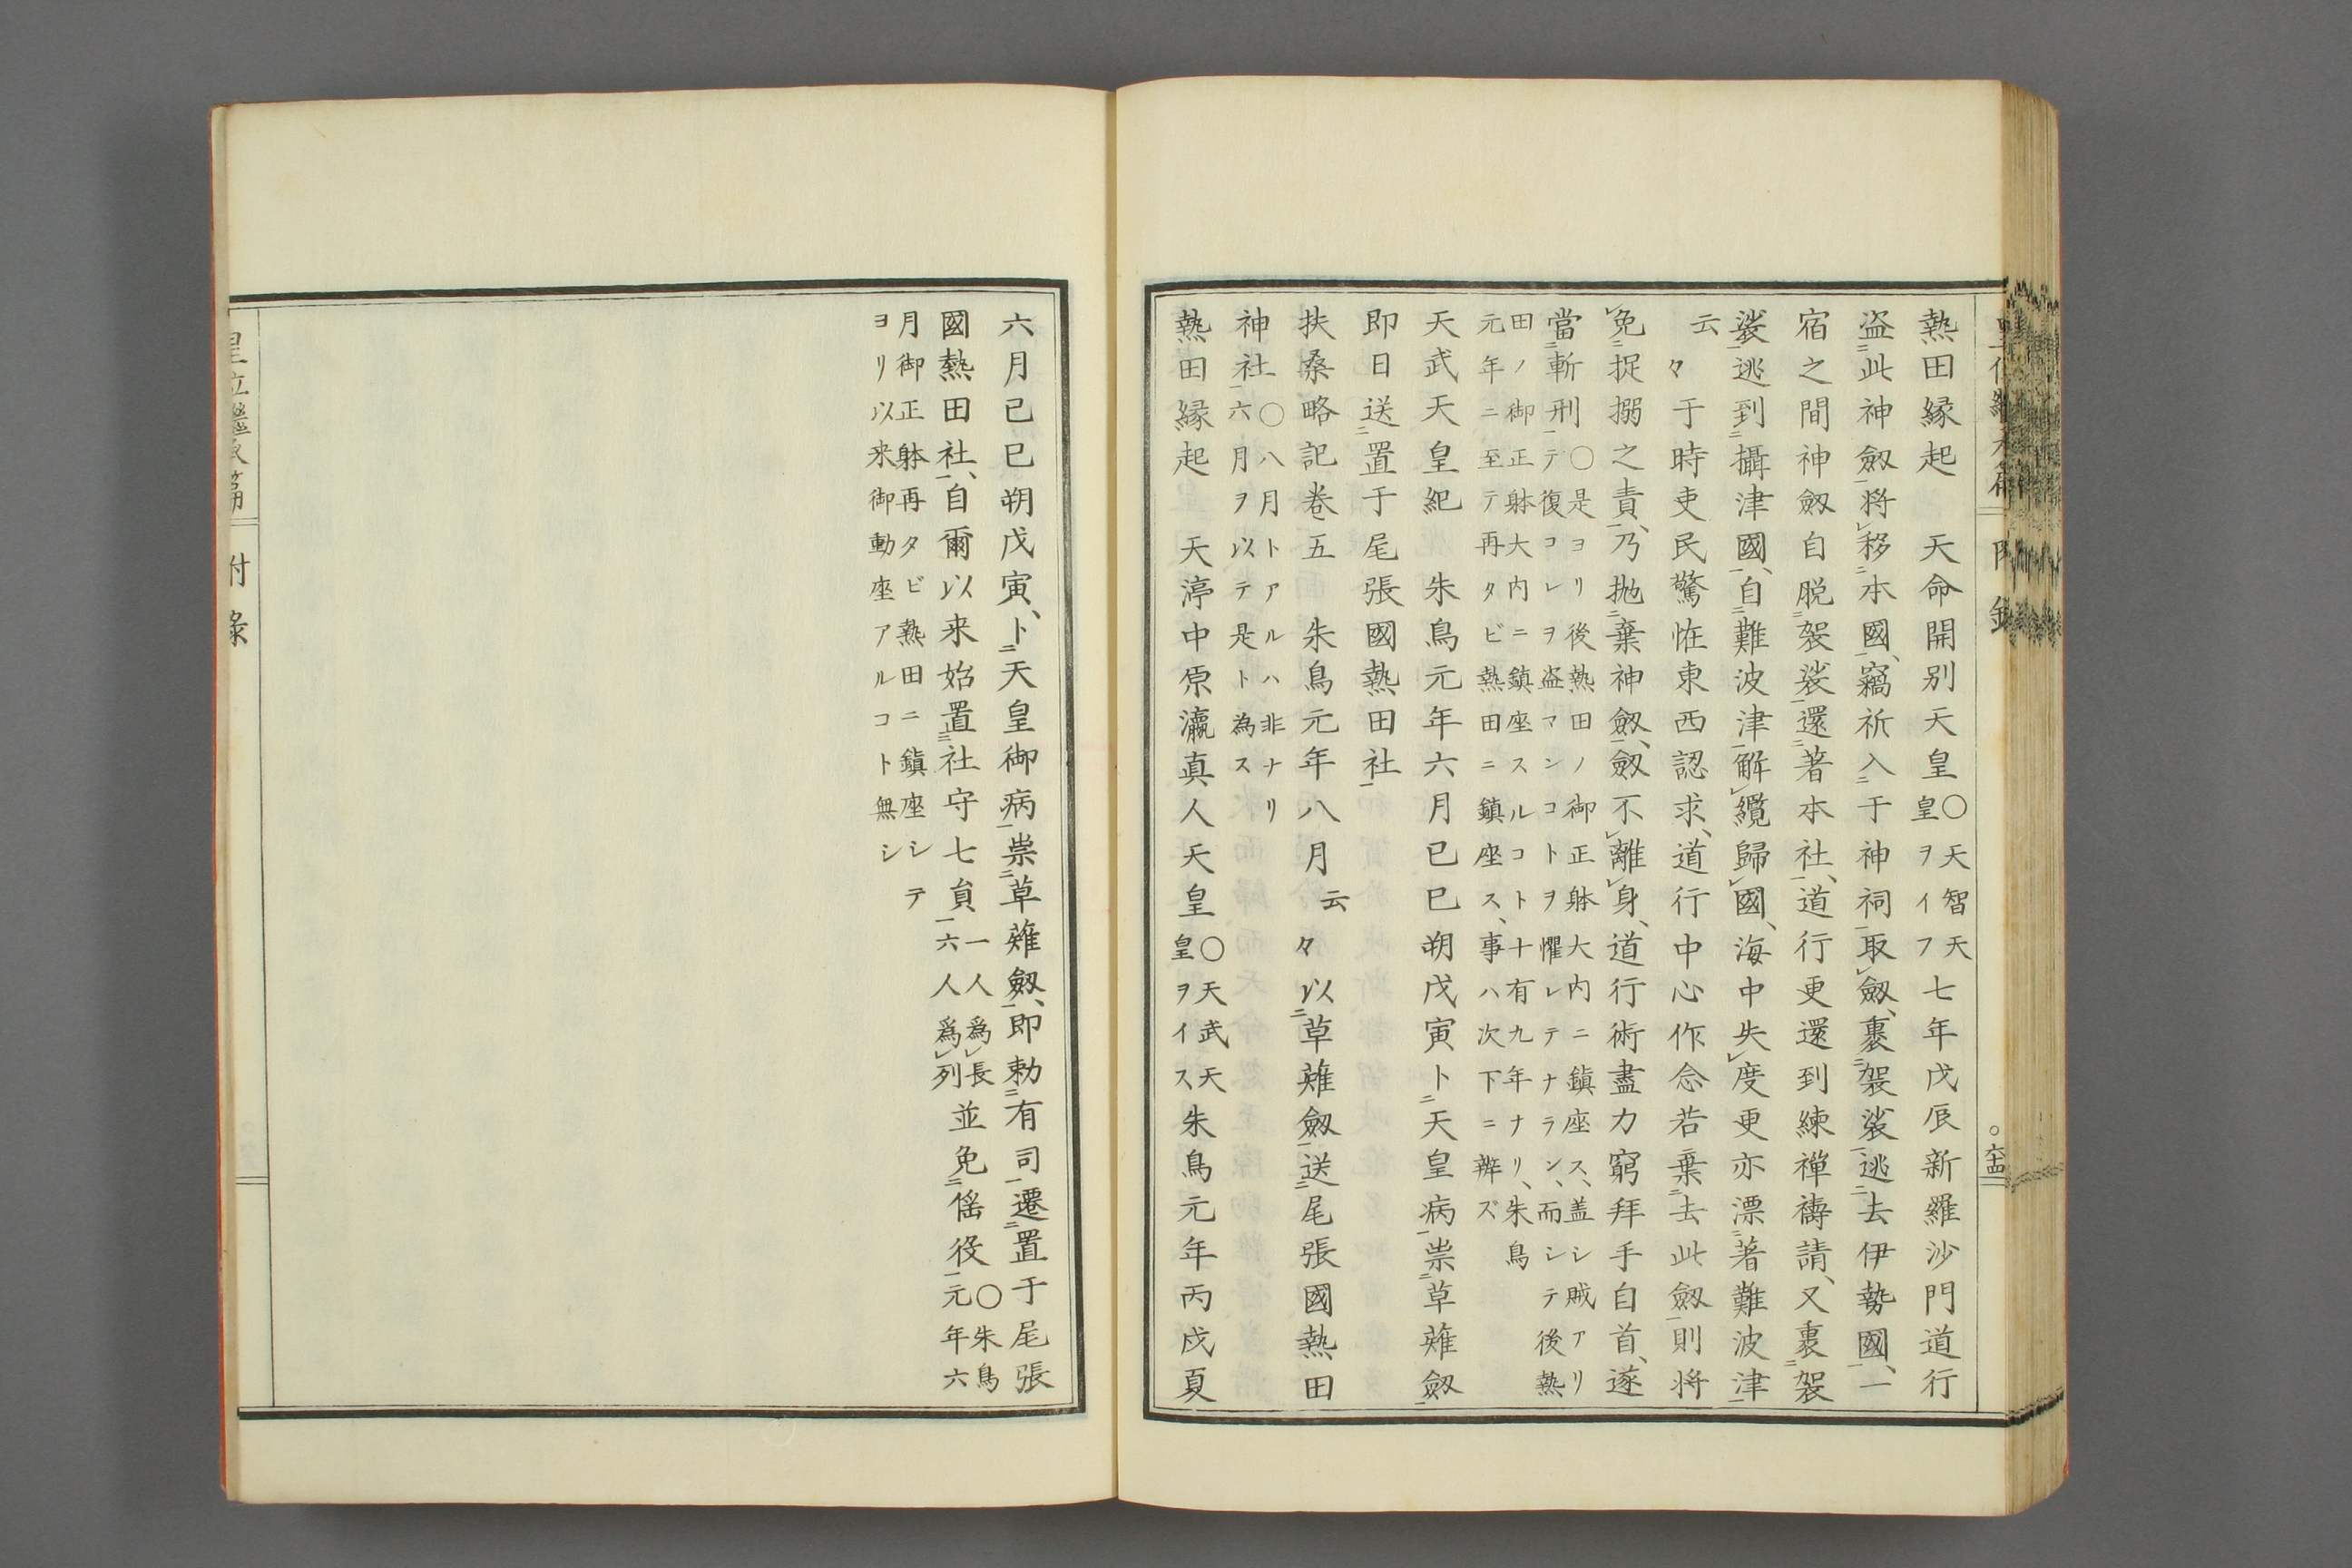 熱田縁起　天命開別天皇〇天智天皇ヲイフ七年戊辰新羅沙門道行
盗二此神劔一将レ移二本國一、竊祈入二于神祠一取レ劔、裹二袈裟一逃二去伊勢國一、一
宿之間神劔自脱二袈裟一還二著本社一、道行更還到練禅禱請、又裹二袈
裟一逃到二攝津國一、自二難波津一解レ纜歸レ國、海中失レ度更亦漂二著難波津一
云々于時吏民驚恠東西認求、道行中心作念若棄二去此劔一則将
レ免二捉搦之責一、乃抛二棄神劔一、劔不レ離レ身、道行術盡力窮拜手自首、遂
當二斬刑一〇是ヨリ後熱田ノ御正躰大内ニ鎮座ス、盖シ賊アリテ復コレヲ盗マンコトヲ懼レテナラン、而シテ後熱
田ノ御正躰大内ニ鎮座スルコト十有九年ナリ、朱鳥元年ニ至テ再タビ熱田ニ鎮座ス、事ハ次下ニ辨ズ
天武天皇紀　朱鳥元年六月己巳朔戊寅卜二天皇病一祟二草薙劔一
即日送二置于尾張國熱田社一
扶桑略記卷五　朱鳥元年八月云々以二草薙劔一送二尾張國熱田
神社一〇八月トアルハ非ナリ六月ヲ以テ是ト為ス
熱田縁起　天渟中原瀛真人天皇〇天武天皇ヲイス朱鳥元年丙戌夏
附録
六十四
六月己巳朔戊寅、卜二天皇御病一祟二草薙劔一、即勅三有司一遷二置于尾張
國熱田社一、自爾以来始置三社守七員一一人為レ長六人為レ列並免二傜役一〇朱鳥元年六
月御正躰再タビ熱田ニ鎮座シテ
ヨリ以来御動座アルコト無シ
附錄